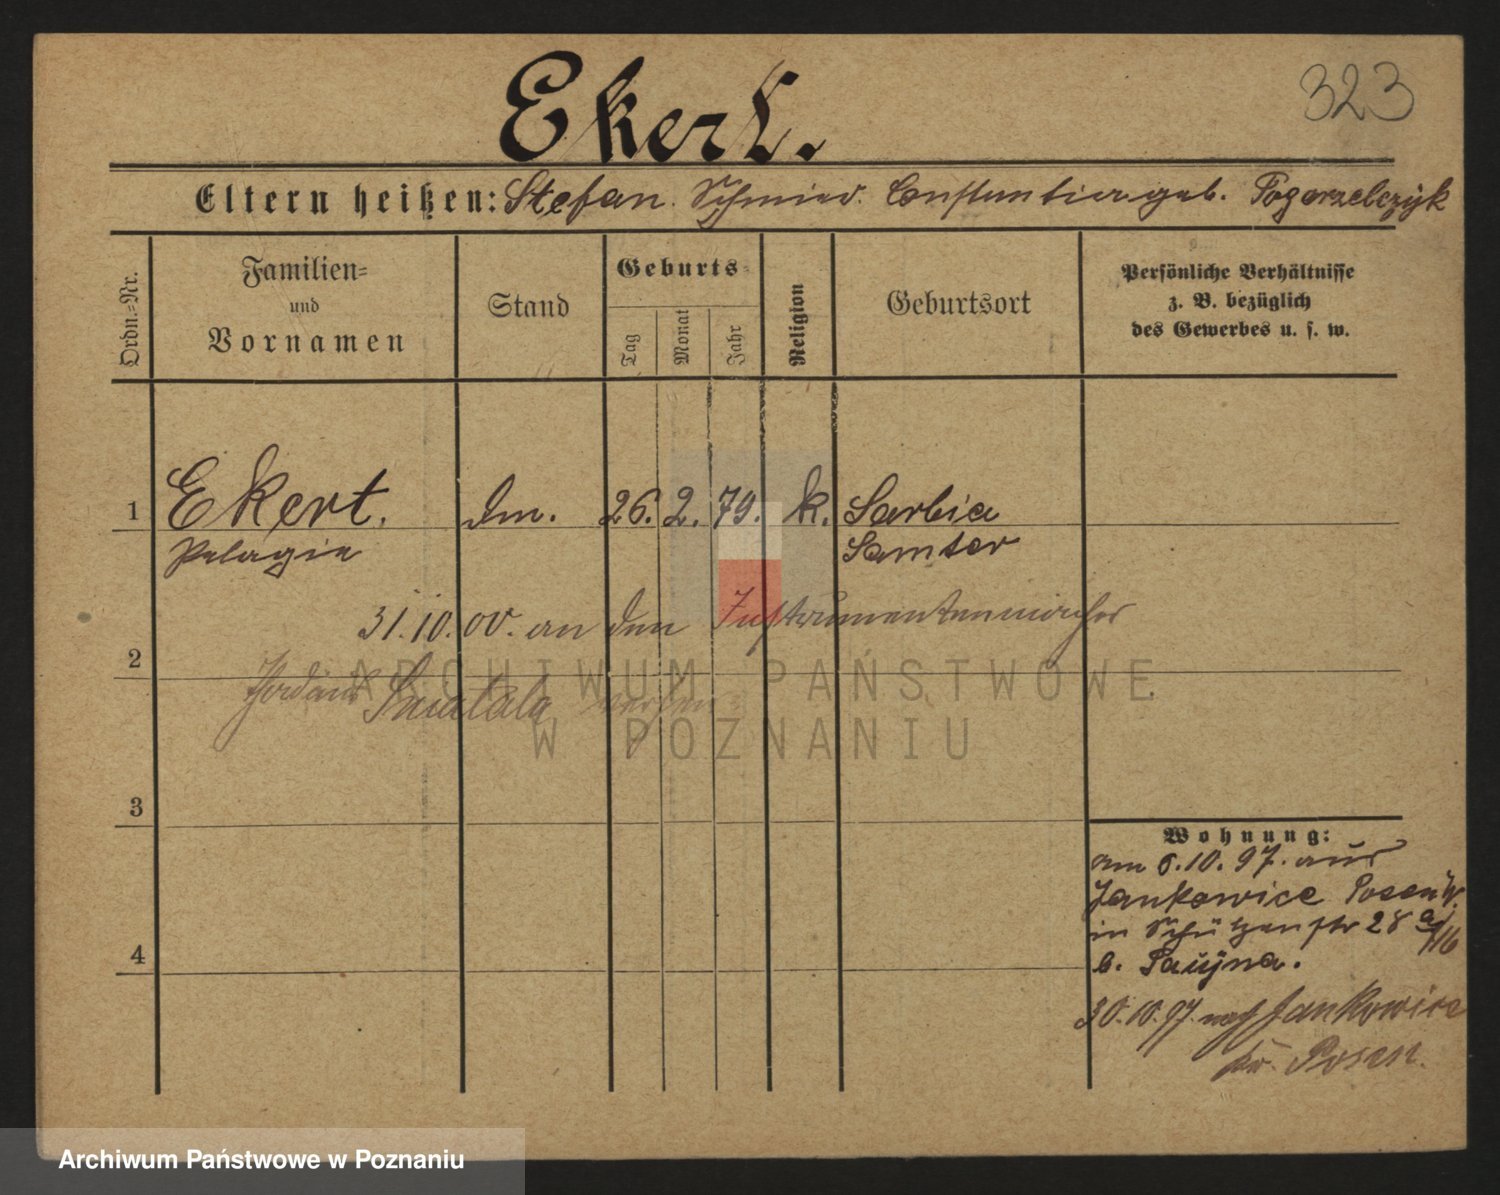 323
Ekert.
Eltern heißen: Stefan. Schmied. Constantia geb. Pogorzelczyk
Ordn.=Nr.
Familien=
und
Vornamen
Stand
Geburts=
Tag
Monat
Jahr
Religion
Geburtsort
Persönliche Verhältnisse
z. B. bezüglich
des Gewerbes u. s. w.
1 Ekert. dm. 26. 2. 79. k. Sarbia
Pelagie Samter
31.10.00. an den Instrumentenmacher
2
Smelala
3
Wohnung:
am 6.10.97. aus
Jankowice Posen W.
in Schützenstr 28
4
b.
30.10.97. nach Jankowice
Kr. Posen.
ARCHIWUM PAŃSTWOWE
W POZNANIU
Archiwum Państwowe w Poznaniu